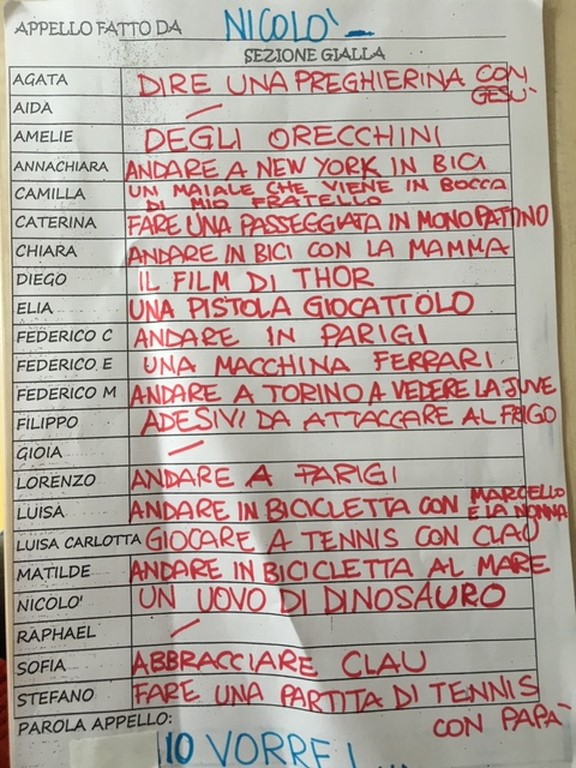 APPELLO FATTO DA NICOLO'
SEZIONE GIALLA
AGATA DIRE UNA PREGHIERINA CON GESU'
AIDA —
AMELIE DEGLI ORECCHINI
ANNACHIARA ANDARE A NEW YORK IN BICI
CAMILLA UN MAIALE CHE VIENE IN BOCCA
DI MIO FRATELLO
CATERINA FARE UNA PASSEGGIATA IN MONOPATTINO
CHIARA ANDARE IN BICI CON LA MAMMA
DIEGO IL FILM DI THOR
ELIA UNA PISTOLA GIOCATTOLO
FEDERICO C ANDARE IN PARIGI
FEDERICO E UNA MACCHINA FERRARI
FEDERICO M ANDARE A TORINO A VEDERE LA JUVE
FILIPPO ADESIVI DA ATTACCARE AL FRIGO
GIOIA —
LORENZO ANDARE A PARIGI
LUISA ANDARE IN BICICLETTA CON MARCELLO E LA NONNA
LUISA CARLOTTA GIOCARE A TENNIS CON CLAU
MATILDE ANDARE IN BICICLETTA AL MARE
NICOLO' UN UOVO DI DINOSAURO
RAPHAEL —
SOFIA ABBRACCIARE CLAU
STEFANO FARE UNA PARTITA DI TENNIS
CON PAPA'
PAROLA APPELLO:
IO VORREI...